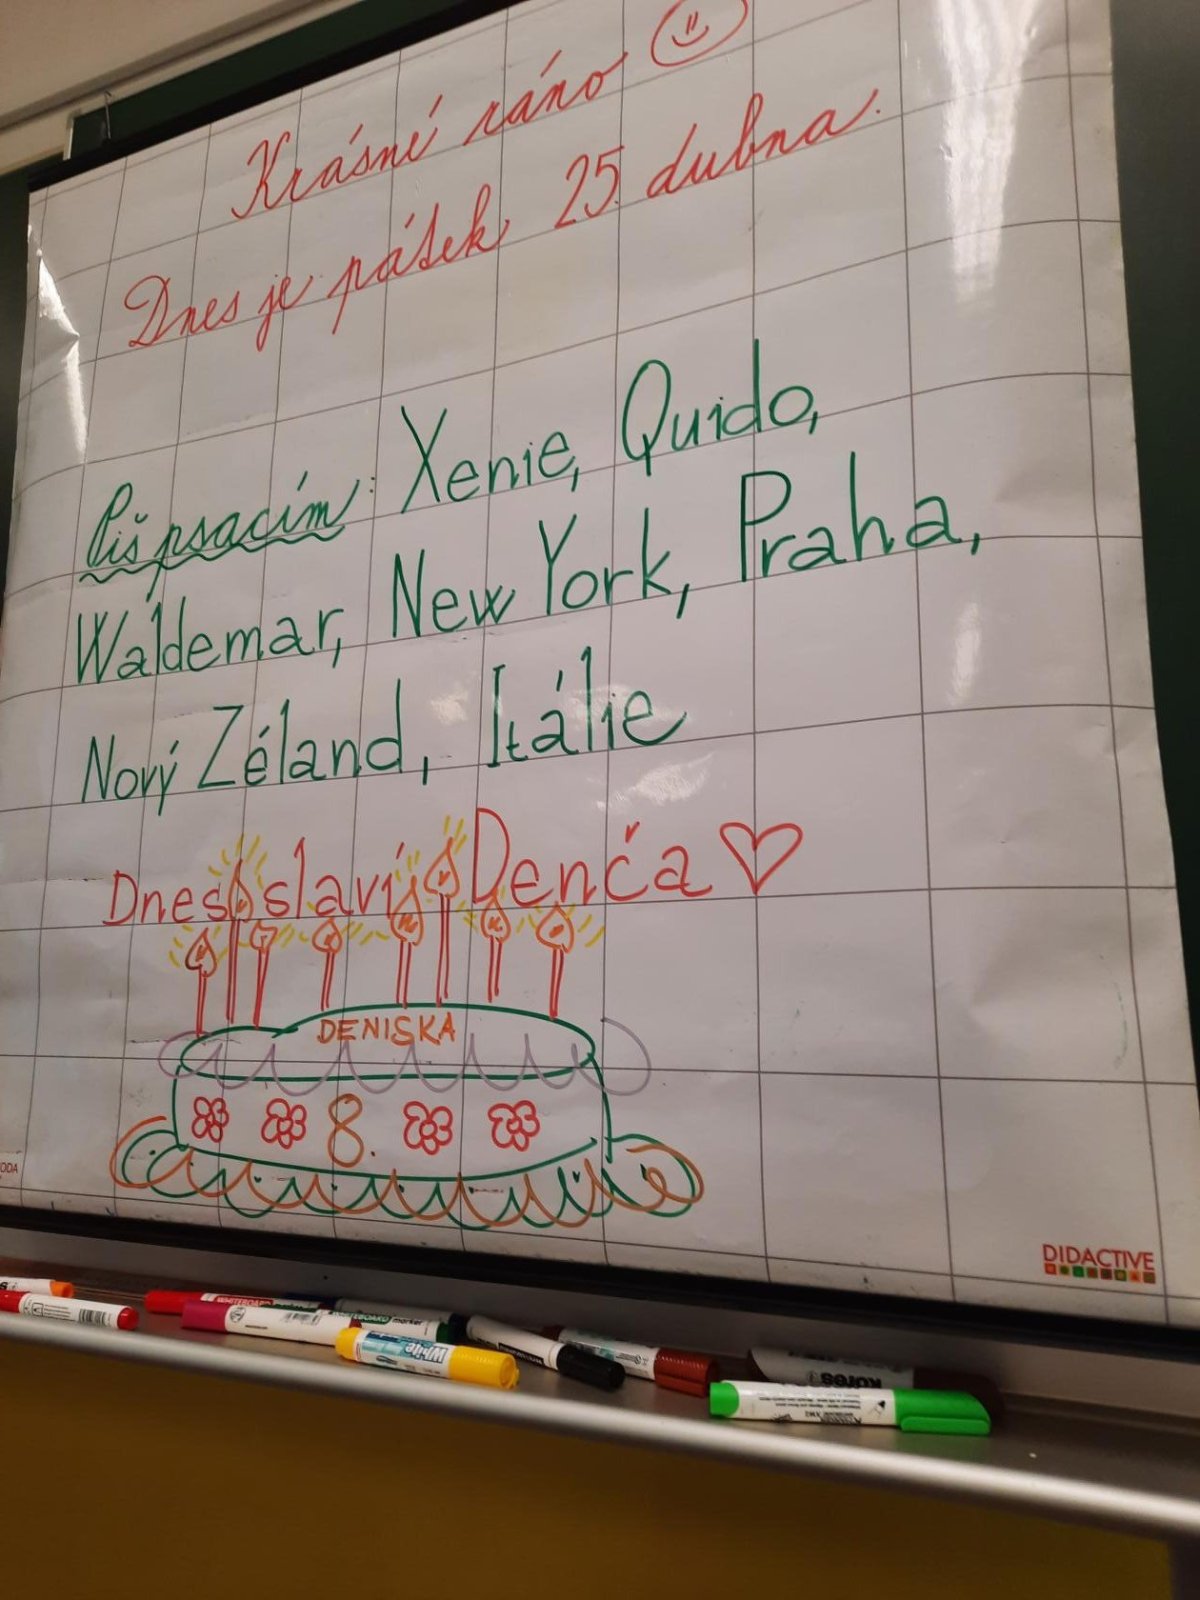 Krásné ráno
Dnes je pátek 25. dubna.
Piš psacím: Xenie, Quido,
Waldemar, New York, Praha,
Nový Zéland, Itálie
Dnes slaví Denča
DENISKA
8.
DIDACTIVE
WHITEBOARD
marker
White
kores